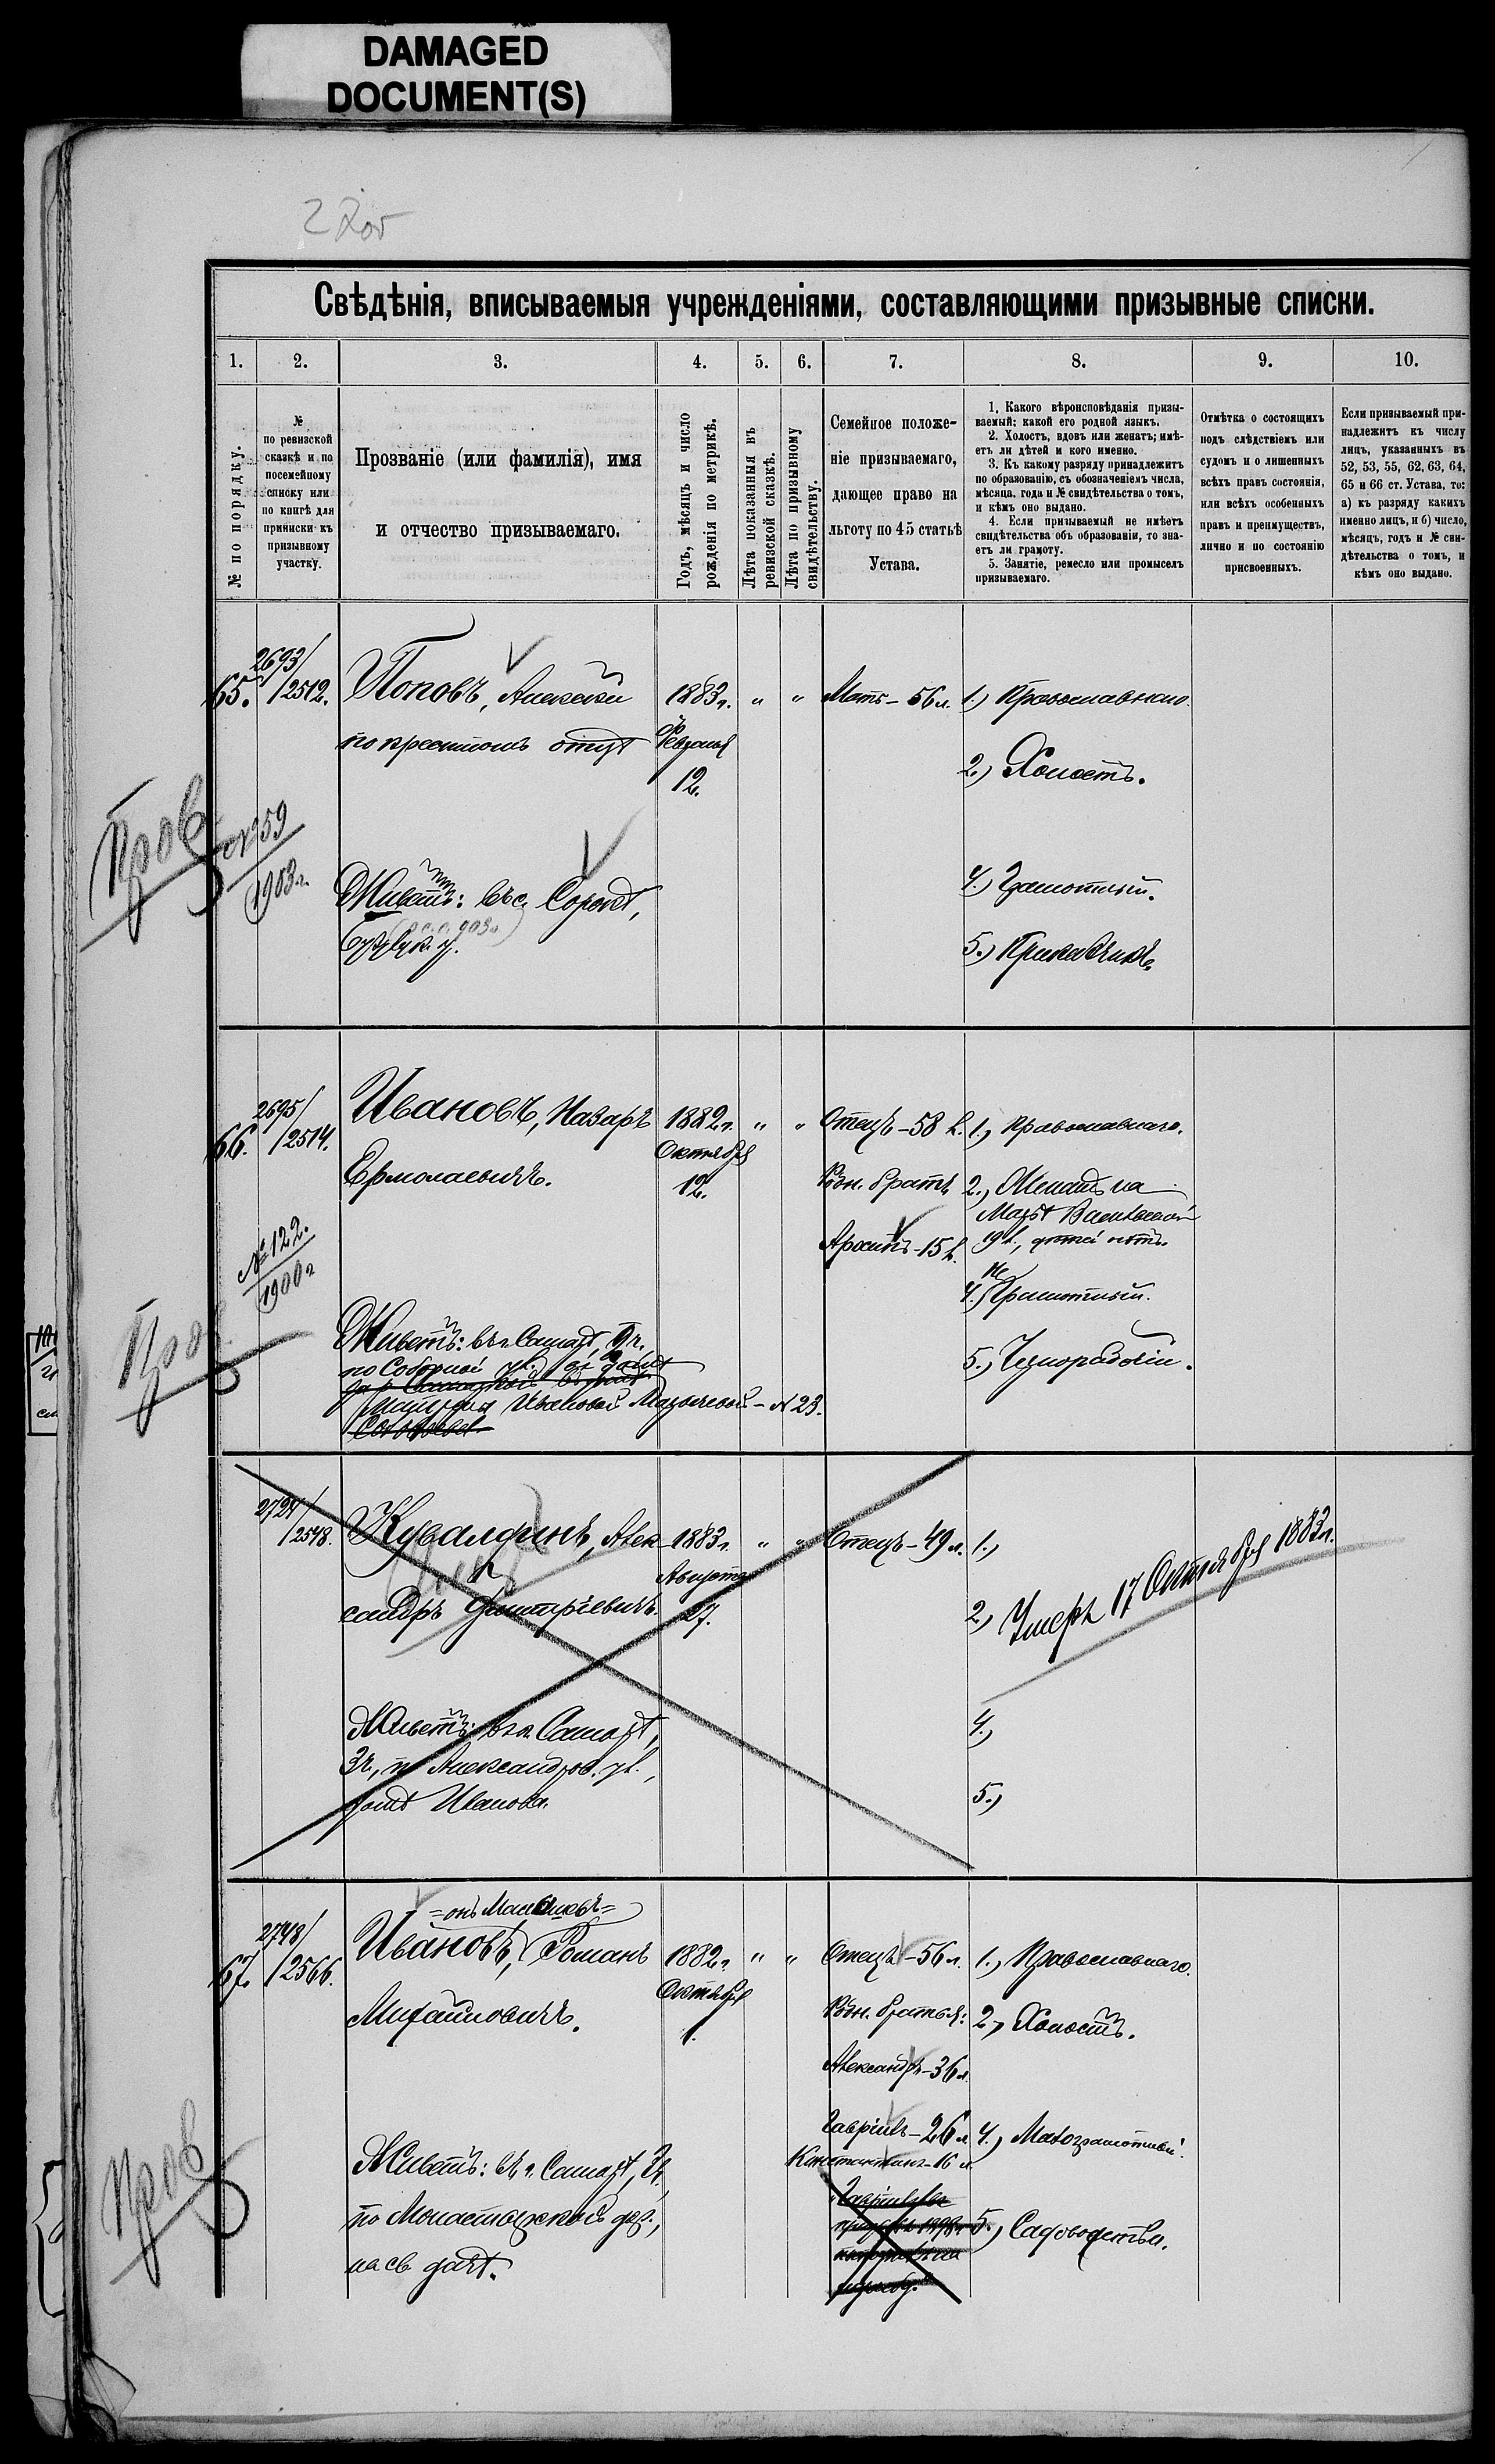 DAMAGED
DOCUMENT(S)
Свѣдѣнія, вписываемыя учрежденіями, составляющими призывные списки.
1. 2. 3. 4. 5. 6. 7. 8. 9. 10.
№ по порядку.
№
по ревизской
сказкѣ и по
посемейному
списку или
по книгѣ для
приписки къ
призывному
участку.
Прозваніе (или фамилія), имя
и отчество призываемаго.
Годъ, мѣсяцъ и число
рожденія по метрикѣ.
Лѣта показанныя въ
ревизской сказкѣ.
Лѣта по призывному
свидѣтельству.
Семейное положе-
ніе призываемаго,
дающее право на
льготу по 45 статьѣ
Устава.
1. Какого вѣроисповѣданія призы-
ваемый: какой его родной языкъ.
2. Холостъ, вдовъ или женатъ; имѣ-
етъ ли дѣтей и кого именно.
3. Къ какому разряду принадлежитъ
по образованію, съ обозначеніемъ числа,
мѣсяца, года и № свидѣтельства о томъ,
и кѣмъ оно выдано.
4. Если призываемый не имѣетъ
свидѣтельства объ образованіи, то зна-
етъ ли грамоту.
5. Занятіе, ремесло или промыселъ
призываемаго.
Отмѣтка о состоящихъ
подъ слѣдствіемъ или
судомъ и о лишенныхъ
всѣхъ правъ состоянія,
или всѣхъ особенныхъ
правъ и преимуществъ,
лично и по состоянію
присвоенныхъ.
Если призываемый при-
надлежитъ къ числу
лицъ, указанныхъ въ
52, 53, 55, 62, 63, 64,
65 и 66 ст. Устава, то:
а) къ разряду какихъ
именно лицъ, и б) число,
мѣсяцъ, годъ и № сви-
дѣтельства о томъ, и
кѣмъ оно выдано.
65. 2693/2512. Поповъ, Алексѣй 1883 г. " " Мать – 56 л. 1.) Православнаго.
по крестномъ отцѣ Февраля
12. 2.) Холостъ.
Пров №59
1903 г.
Живетъ: въ с. 4.) Грамотный.
Бузулук. у. 5.) Прикащикъ.
66. 2695/2514. Ивановъ, Назаръ 1882 г. " " Отецъ – 58 л. 1.) Православнаго.
Ермолаевичъ. Октября
12. Родн. братъ 2.) Женатъ на
Марьѣ Васильевой
19 л., дѣтей нѣтъ.
15 л.
№ 122.
1900 г.
Пров
4.) Не грамотный.
Живетъ: въ г. Самарѣ,
по Соборной ул.,
5.) Чернорабочій.
Ивановой – № 23.
2727/2548. Кувалдинъ, Алек- 1883 г. " " Отецъ – 49 л. 1.)
Августа
сандръ Дмитріевичъ. 27. 2.) Умеръ 17 Октября 1883 г.
Живетъ: въ г. Самарѣ, 4.)
3 ч., по Александров. ул.,
домъ Иванова. 5.)
67. 2748/2566. Ивановъ, Романъ 1882 г. " " Отецъ – 56 л. 1.) Православнаго.
Октября
Михайловичъ. 1. Родн. братья: 2.) Холостъ.
Александръ – 36 л.
Гавріилъ – 26 л. 4.) Малограмотный.
Константинъ – 16 л.
Пров
Живетъ: въ г. Самарѣ,
по Монастырской дор.,
на св. дачѣ. 5.) Садоводство.